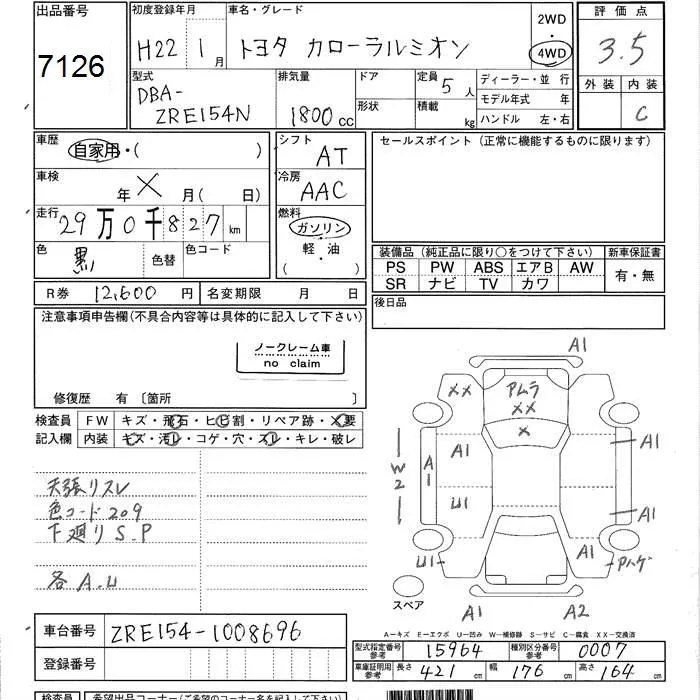 出品番号
7126
初度登録年月
H22 1月
車名・グレード
トヨタ カローラルミオン
2WD
・
4WD
評価点
3.5
型式
DBA-
ZRE154N
排気量
1800cc
ドア
形状
定員 5人
積載 kg
ディーラー・並行
モデル年式 年
ハンドル 左・右
外装 内装
C
車歴
自家用・( )
シフト
AT
セールスポイント (正常に機能するものに限ります)
車検
年 × 月( 日)
冷房
AAC
走行
29万0千827km
燃料
ガソリン
・
軽・油
( )
色
黒
色替
色コード
装備品 (純正品に限り○をつけて下さい)
新車保証書
PS PW ABS エアB AW
SR ナビ TV カワ
有・無
R券 12,600円
名変期限 月 日
後日品
注意事項申告欄(不具合内容等は具体的に記入して下さい)
ノークレーム車
no claim
修復歴 有〔箇所 〕
検査員
記入欄
FW キズ・飛石・ヒビ割・リペア跡・×要
内装 キズ・汚レ・コゲ・穴・スレ・キレ・破レ
天張リスレ
色コード209
下廻りS.P
各A.U
A1
××
アムラ
××
×
A1
A1
A1
W2
U1
A1
U1
A1
Pハゲ
スペア
A1
A2
A-キズ E-エクボ U-凹み W-補修跡 S-サビ C-腐食 XX-交換済
車台番号 ZRE154-1008696
登録番号
型式指定番号
参考
15964
種別区分番号
参考
0007
車庫証明用
参考
長さ 421cm
幅 176cm
高さ 164cm
検査員
希望出品コーナー(ご希望のコーナー名を記入下さい)